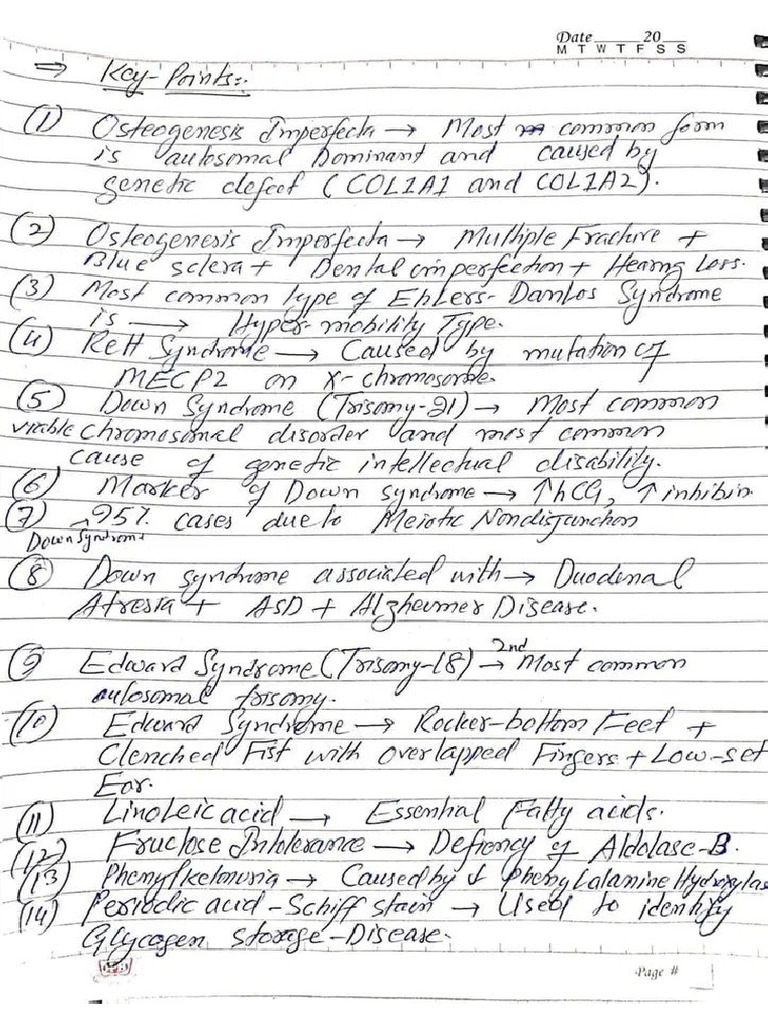 Date 20
M T W T F S S
⇒ Key-Points:-
(1) Osteogenesis Imperfecta → Most common form
is autosomal Dominant and caused by
genetic defect (COL1A1 and COL1A2).
(2) Osteogenesis Imperfecta → Multiple Fracture +
Blue sclera + Dental imperfection + Hearing Loss.
(3) Most common type of Ehlers-Danlos Syndrome
is → Hyper-mobility Type.
(4) Rett Syndrome → Caused by mutation of
MECP2 on X-chromosome.
(5) Down Syndrome (Trisomy-21) → Most common
viable chromosomal disorder and most common
cause of genetic intellectual disability.
(6) Marker of Down syndrome → ↑hCG, ↑inhibin.
(7) → 95% cases due to Meiotic Nondisjunction
Down Syndrome
(8) Down syndrome associated with → Duodenal
Atresia + ASD + Alzheimer Disease.
(9) Edward Syndrome (Trisomy-18) → 2nd Most common
autosomal trisomy.
(10) Edward Syndrome → Rocker-bottom Feet +
Clenched Fist with overlapped Fingers + Low-set
Ear.
(11) Linoleic acid → Essential Fatty acids.
(12) Fructose Intolerance → Defiency of Aldolase-B.
(13) Phenylketonuria → Caused by ↓ Phenylalanine Hydroxylas
(14) Periodic acid-Schiff stain → Used to identify
Glycogen Storage-Disease.
Page #